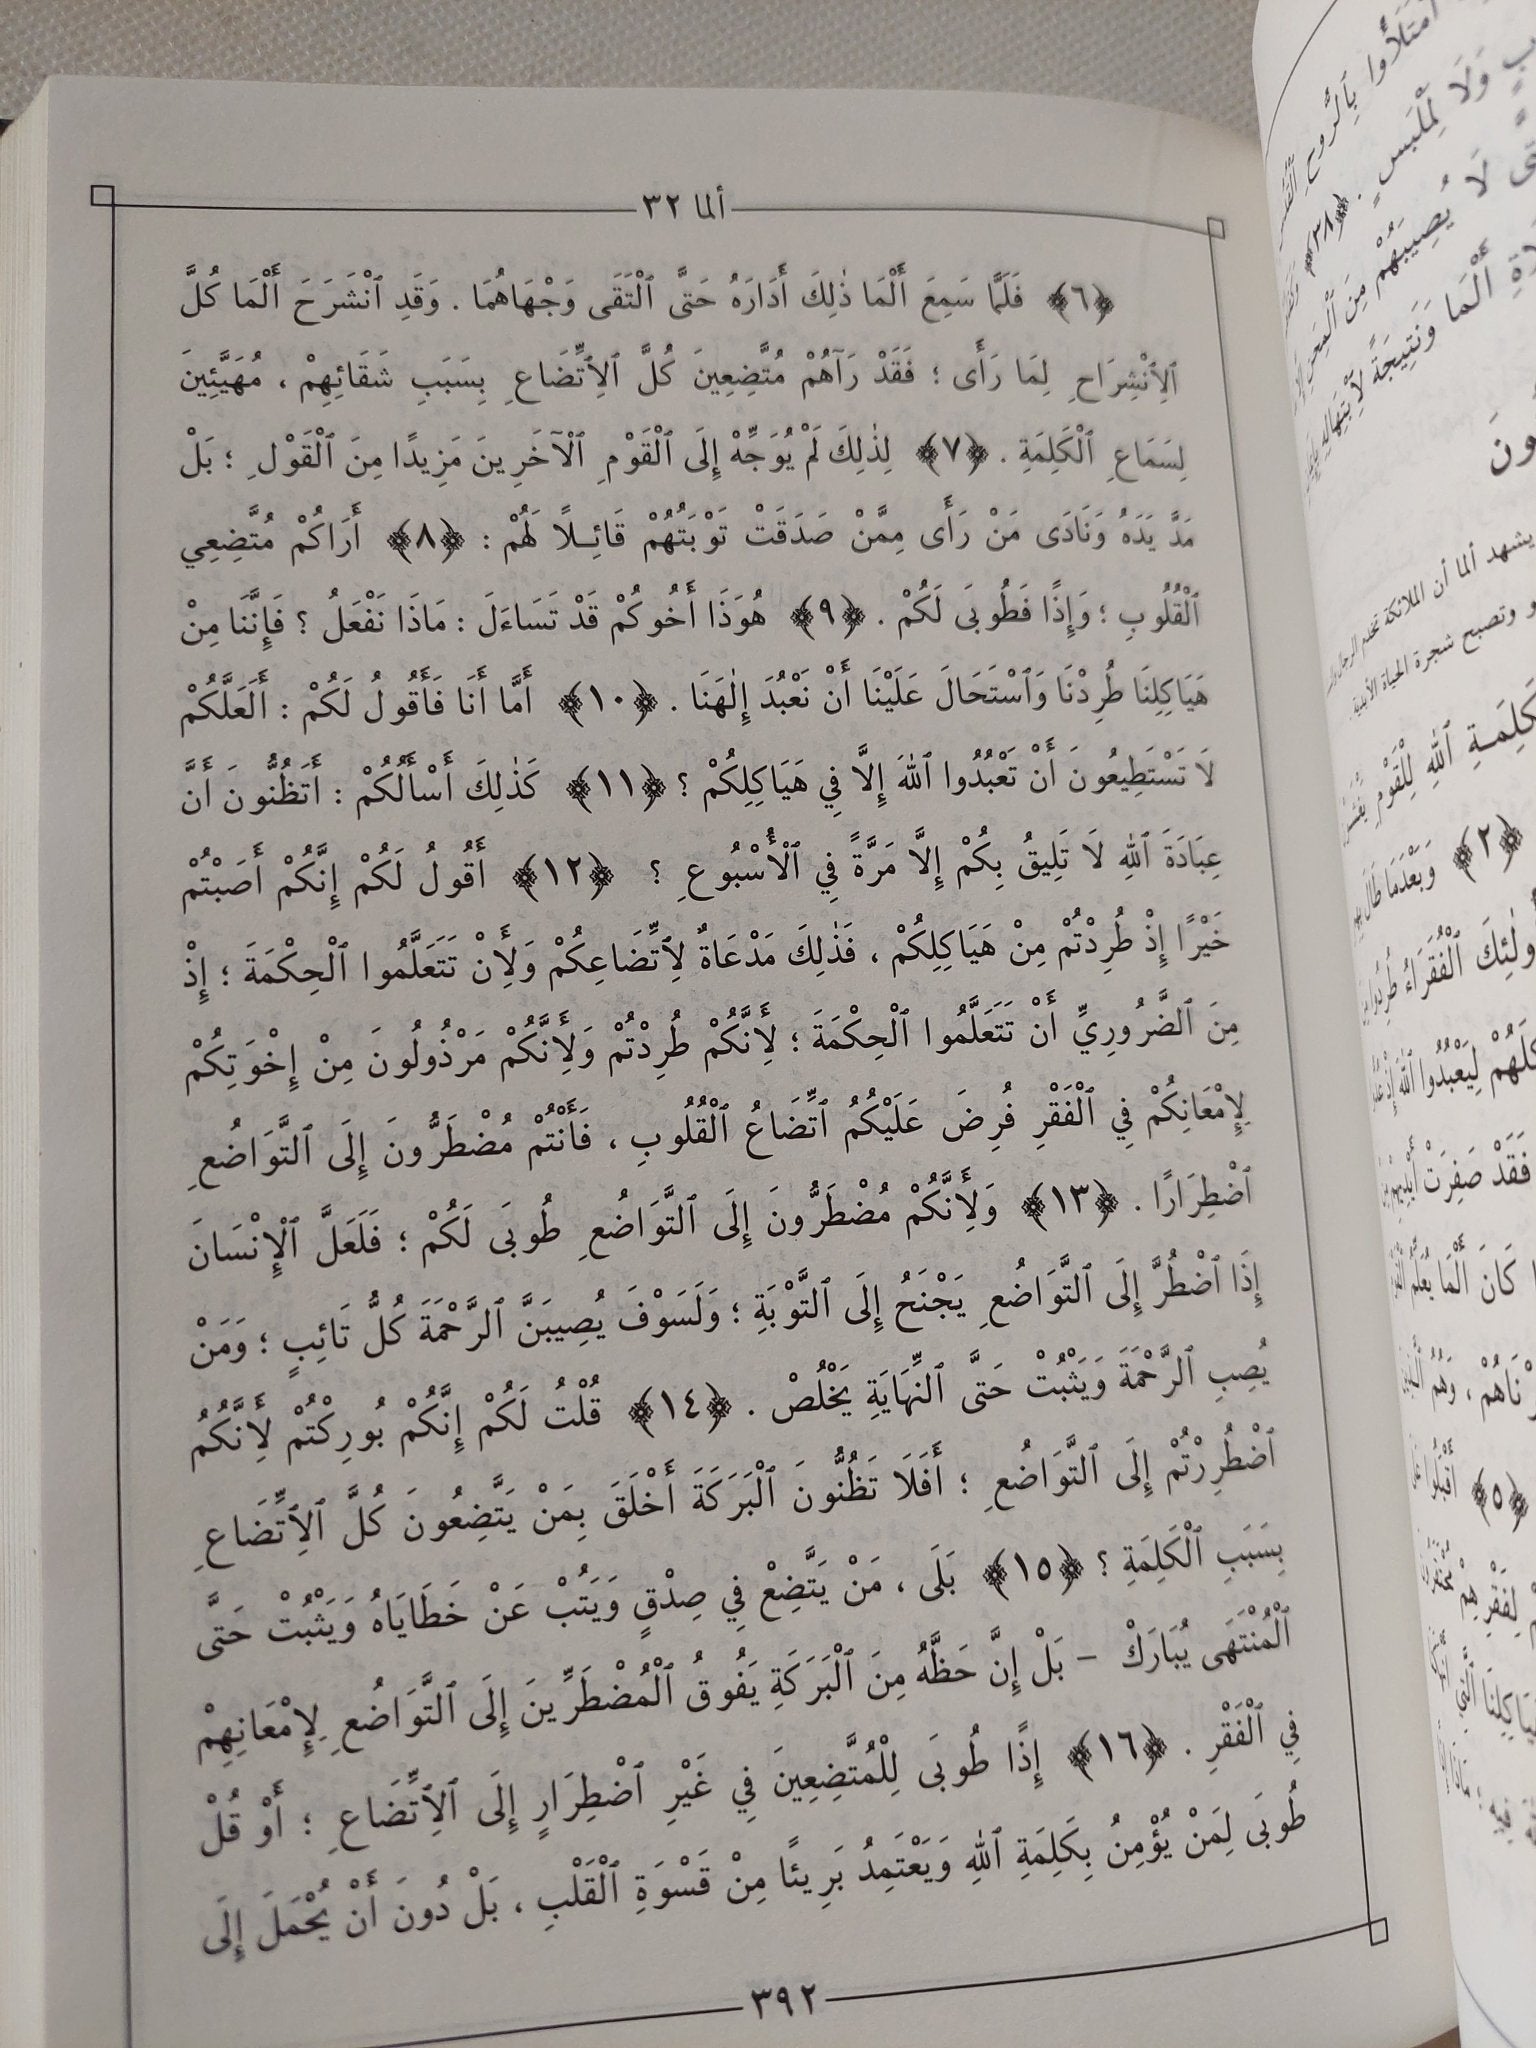 ألما ٣٢
﴿٦﴾ فَلَمَّا سَمِعَ أَلْمَا ذٰلِكَ أَدَارَهُ حَتَّى ٱلْتَقَى وَجْهَاهُمَا . وَقَدِ ٱنْشَرَحَ أَلْمَا كُلَّ
ٱلِٱنْشِرَاحِ لِمَا رَأَى ؛ فَقَدْ رَآهُمْ مُتَّضِعِينَ كُلَّ ٱلِٱتِّضَاعِ بِسَبَبِ شَقَائِهِمْ ، مُهَيَّئِينَ
لِسَمَاعِ ٱلْكَلِمَةِ . ﴿٧﴾ لِذٰلِكَ لَمْ يُوَجِّهْ إِلَى ٱلْقَوْمِ ٱلْآخَرِينَ مَزِيدًا مِنَ ٱلْقَوْلِ ؛ بَلْ
مَدَّ يَدَهُ وَنَادَى مَنْ رَأَى مِمَّنْ صَدَقَتْ تَوْبَتُهُمْ قَائِلًا لَهُمْ : ﴿٨﴾ أَرَاكُمْ مُتَّضِعِي
ٱلْقُلُوبِ ؛ وَإِذًا فَطُوبَى لَكُمْ . ﴿٩﴾ هُوَذَا أَخُوكُمْ قَدْ تَسَاءَلَ : مَاذَا نَفْعَلُ ؟ فَإِنَّنَا مِنْ
هَيَاكِلِنَا طُرِدْنَا وَٱسْتَحَالَ عَلَيْنَا أَنْ نَعْبُدَ إِلٰهَنَا . ﴿١٠﴾ أَمَّا أَنَا فَأَقُولُ لَكُمْ : أَلَعَلَّكُمْ
لَا تَسْتَطِيعُونَ أَنْ تَعْبُدُوا ٱللهَ إِلَّا فِي هَيَاكِلِكُمْ ؟ ﴿١١﴾ كَذٰلِكَ أَسْأَلُكُمْ : أَتَظُنُّونَ أَنَّ
عِبَادَةَ ٱللهِ لَا تَلِيقُ بِكُمْ إِلَّا مَرَّةً فِي ٱلْأُسْبُوعِ ؟ ﴿١٢﴾ أَقُولُ لَكُمْ إِنَّكُمْ أَصَبْتُمْ
خَيْرًا إِذْ طُرِدْتُمْ مِنْ هَيَاكِلِكُمْ ، فَذٰلِكَ مَدْعَاةٌ لِٱتِّضَاعِكُمْ وَلِأَنْ تَتَعَلَّمُوا ٱلْحِكْمَةَ ؛ إِذْ
مِنَ ٱلضَّرُورِيِّ أَنْ تَتَعَلَّمُوا ٱلْحِكْمَةَ ؛ لِأَنَّكُمْ طُرِدْتُمْ وَلِأَنَّكُمْ مَرْذُولُونَ مِنْ إِخْوَتِكُمْ
لِإِمْعَانِكُمْ فِي ٱلْفَقْرِ فُرِضَ عَلَيْكُمُ ٱتِّضَاعُ ٱلْقُلُوبِ ، فَأَنْتُمْ مُضْطَرُّونَ إِلَى ٱلتَّوَاضُعِ
ٱضْطِرَارًا . ﴿١٣﴾ وَلِأَنَّكُمْ مُضْطَرُّونَ إِلَى ٱلتَّوَاضُعِ طُوبَى لَكُمْ ؛ فَلَعَلَّ ٱلْإِنْسَانَ
إِذَا ٱضْطُرَّ إِلَى ٱلتَّوَاضُعِ يَجْنَحُ إِلَى ٱلتَّوْبَةِ ؛ وَلَسَوْفَ يُصِيبَنَّ ٱلرَّحْمَةَ كُلُّ تَائِبٍ ؛ وَمَنْ
يُصِبِ ٱلرَّحْمَةَ وَيَثْبُتْ حَتَّى ٱلنِّهَايَةِ يَخْلُصْ . ﴿١٤﴾ قُلْتُ لَكُمْ إِنَّكُمْ بُورِكْتُمْ لِأَنَّكُمُ
ٱضْطُرِرْتُمْ إِلَى ٱلتَّوَاضُعِ ؛ أَفَلَا تَظُنُّونَ ٱلْبَرَكَةَ أَخْلَقَ بِمَنْ يَتَّضِعُونَ كُلَّ ٱلِٱتِّضَاعِ
بِسَبَبِ ٱلْكَلِمَةِ ؟ ﴿١٥﴾ بَلَى ، مَنْ يَتَّضِعْ فِي صِدْقٍ وَيَتُبْ عَنْ خَطَايَاهُ وَيَثْبُتْ حَتَّى
ٱلْمُنْتَهَى يُبَارَكْ - بَلْ إِنَّ حَظَّهُ مِنَ ٱلْبَرَكَةِ يَفُوقُ ٱلْمُضْطَرِّينَ إِلَى ٱلتَّوَاضُعِ لِإِمْعَانِهِمْ
فِي ٱلْفَقْرِ . ﴿١٦﴾ إِذًا طُوبَى لِلْمُتَّضِعِينَ فِي غَيْرِ ٱضْطِرَارٍ إِلَى ٱلِٱتِّضَاعِ ؛ أَوْ قُلْ
طُوبَى لِمَنْ يُؤْمِنُ بِكَلِمَةِ ٱللهِ وَيَعْتَمِدُ بَرِيئًا مِنْ قَسْوَةِ ٱلْقَلْبِ ، بَلْ دُونَ أَنْ يُحْمَلَ إِلَى
٣٩٢